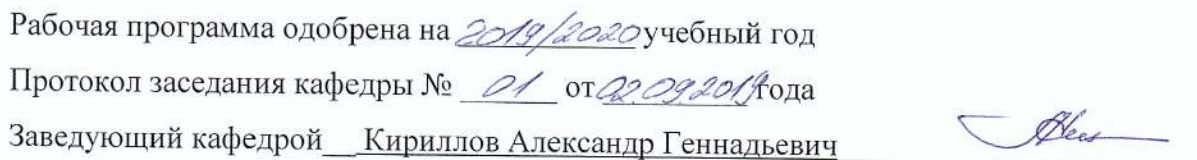 Рабочая программа одобрена на 2019/2020 учебный год
Протокол заседания кафедры № 01 от 02.09.2019 года
Заведующий кафедрой__Кириллов Александр Геннадьевич